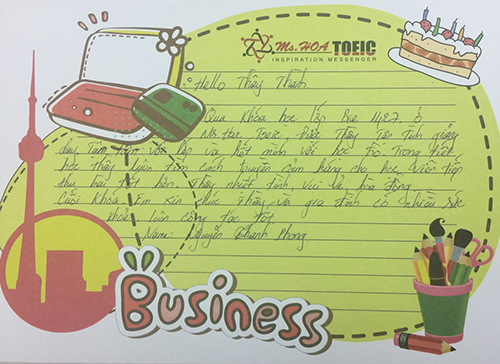 Ms. HOA TOEIC
INSPIRATION MESSENGER
Hello Thầy Thịnh
Qua khóa học lớp Pre 1427 ở
Ms Hoa Toeic, Được Thầy Tận tình giảng
dạy, Tâm với lớp và hết mình với học Đó Trong tiết
học thầy luôn Tìm cách truyền cảm hứng cho học viên tiếp
thu bài tốt hơn. Thầy nhiệt tình, vui vẻ, hòa đồng
Cuối khóa Em xin chúc Thầy và gia đình có nhiều sức
khỏe luôn công tác tốt.
Name: Nguyễn Thanh Phong
Business